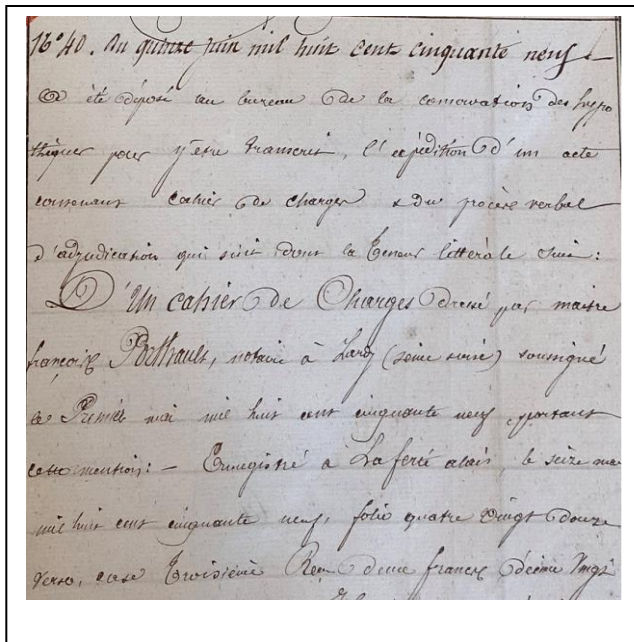 N° 40. Du quinze juin mil huit cent cinquante neuf
a été déposé au bureau de la conservation des hypo
thèques pour y être transcrit, l'expédition d'un acte
contenant cahier de charges & du procès verbal
d'adjudication qui suit dont la teneur littérale suit :
D'Un cahier de Charges dressé par maitre
françois, notaire à Lardy (seine & oise) soussigné
le Premier mai mil huit cent cinquante neuf, portant
cette mention : - Enregistré à Laferté alais, le seize mai
mil huit cent cinquante neuf, folio quatre vingt douze
verso, case troisième Reçu deux francs décime vingt